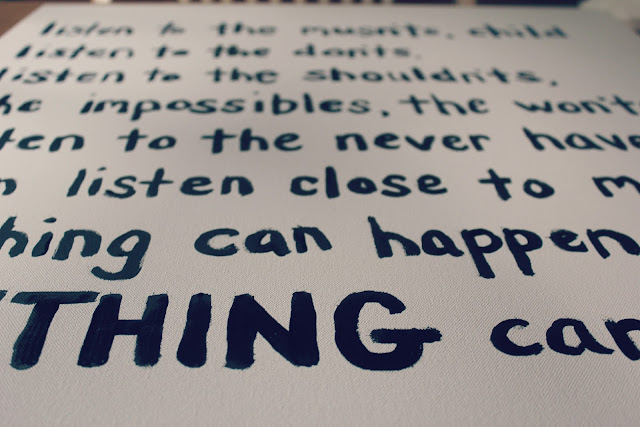 listen to the musn'ts, child
listen to the don'ts.
listen to the shouldn'ts,
he impossibles, the won't
ten to the never have
n listen close to m
hing can happen
YTHING can